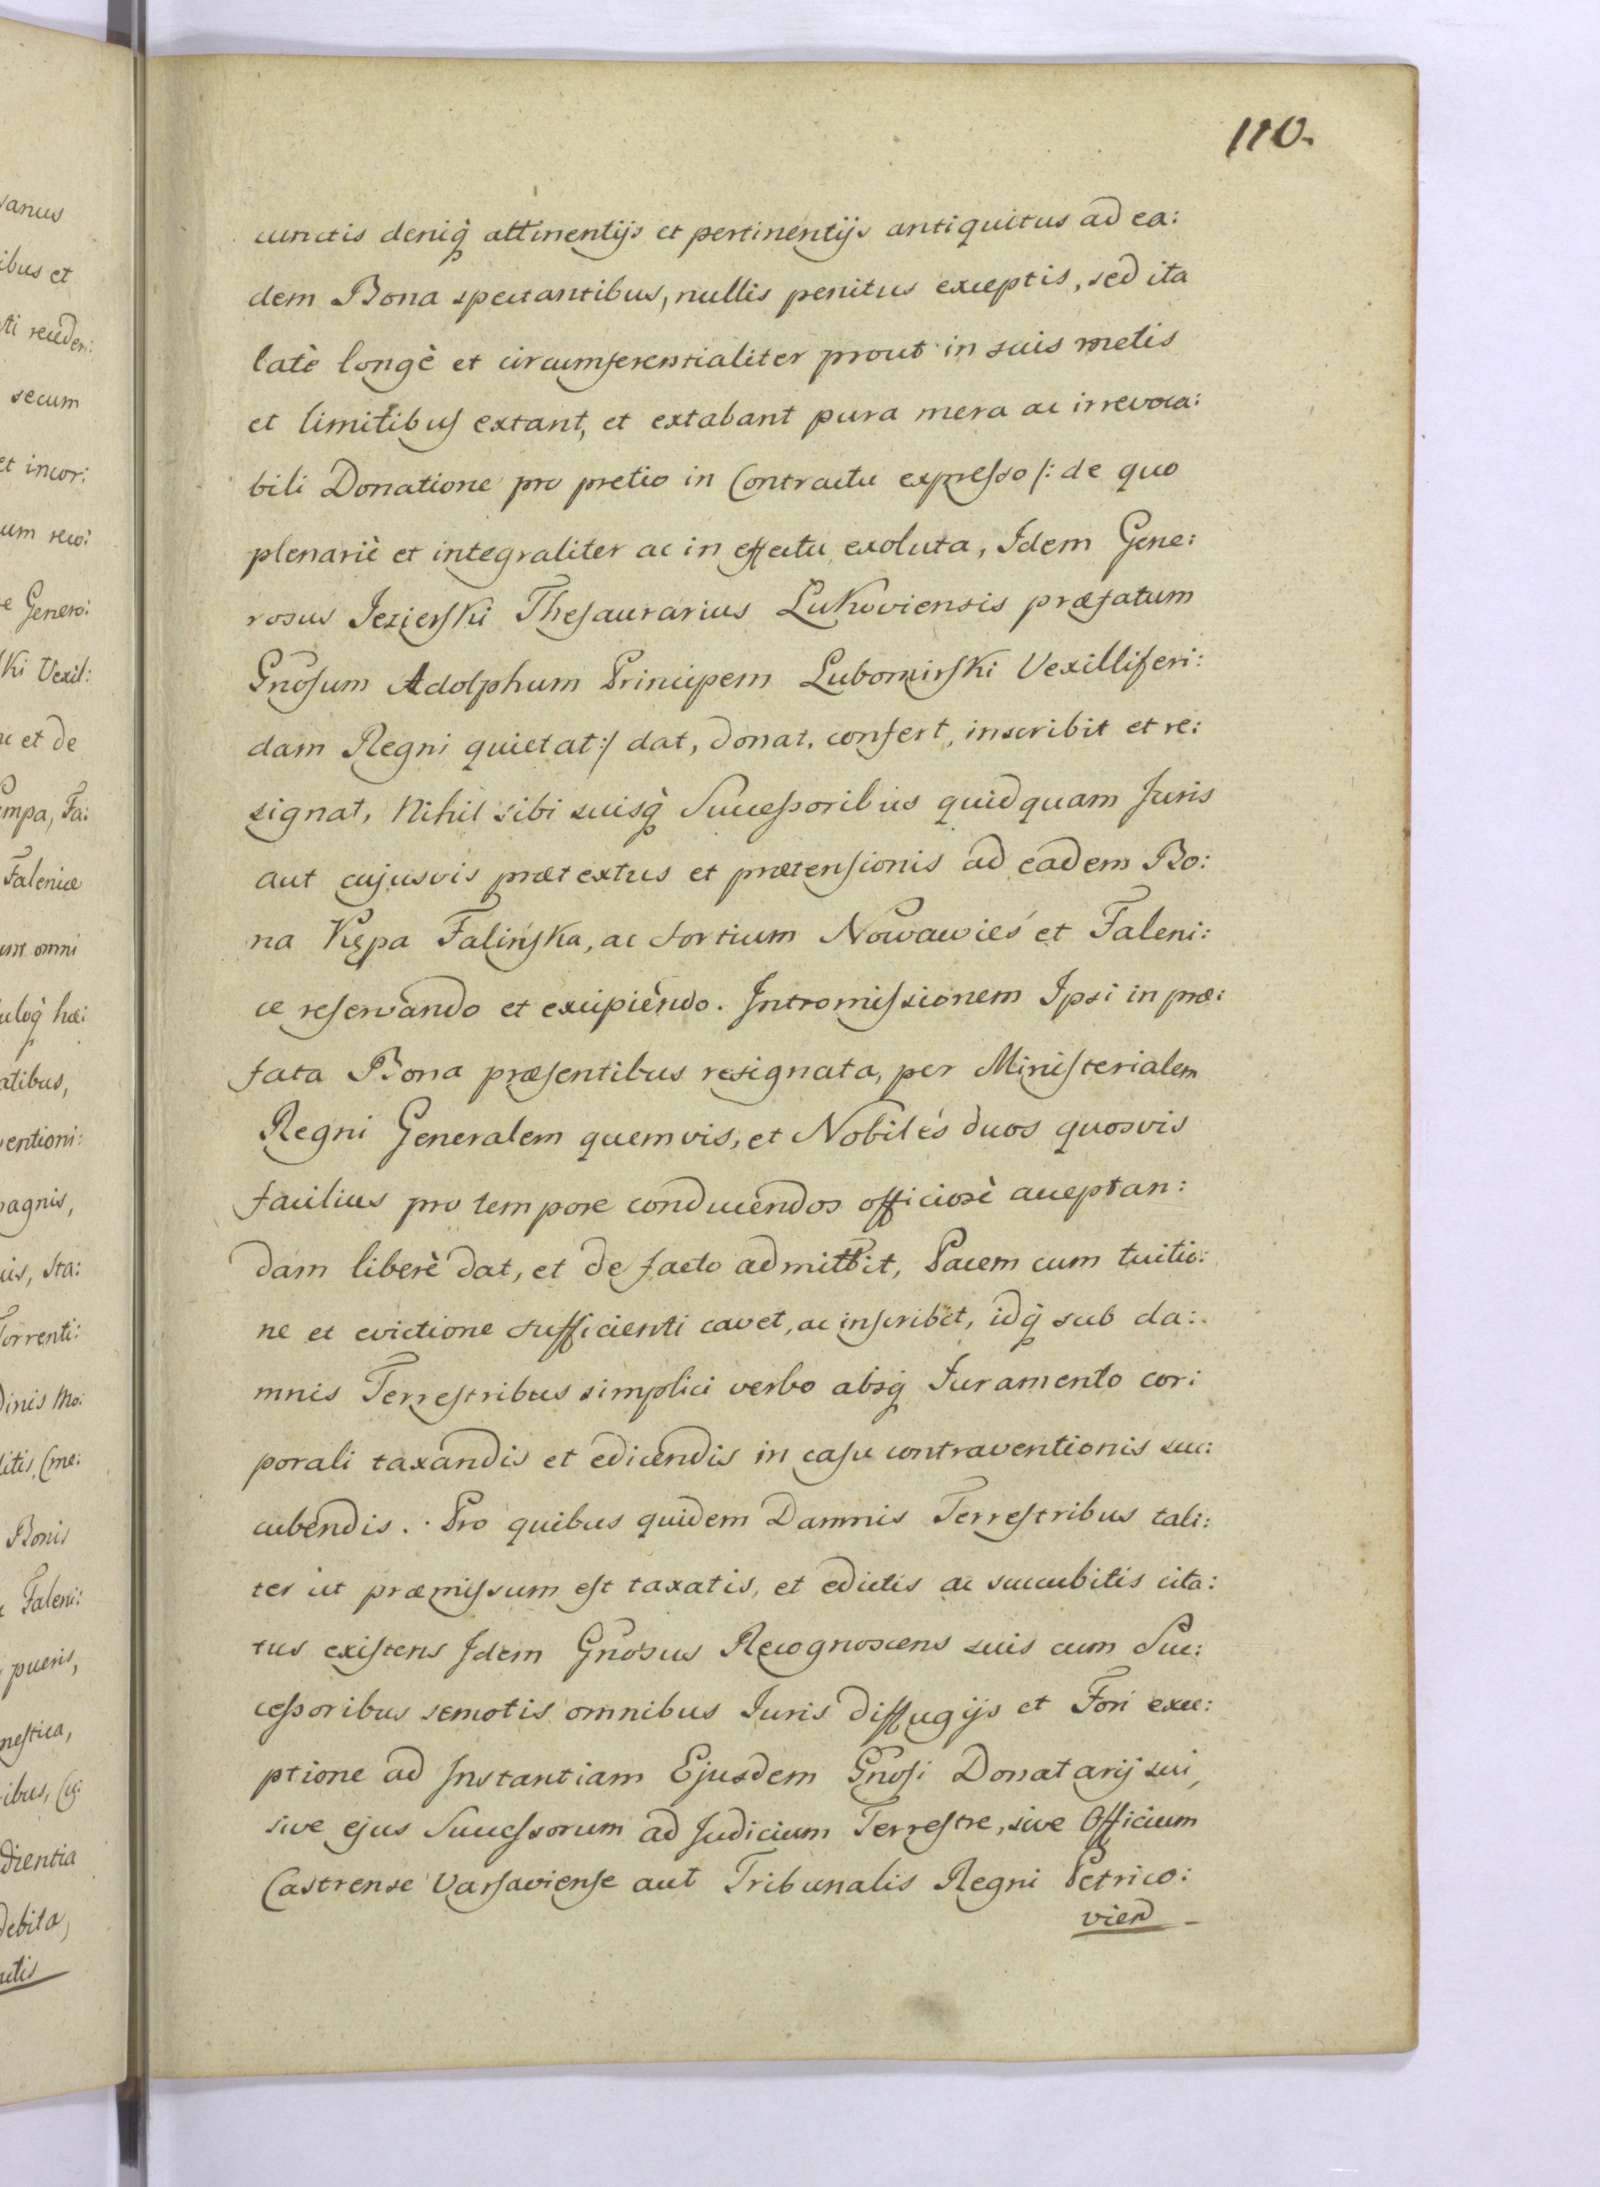 110.
cunctis deniq̀ attinentijs et pertinentijs antiquitus ad ea:
dem Bona spectantibus, nullis penitus exceptis, sed ita
latè longè et circumferentialiter prout in suis metis
et limitibus extant, et extabant pura mera ac irrevoca:
bili Donatione pro pretio in Contractu expresso /: de quo
plenariè et integraliter ac in effectu exoluta, Idem Gene:
rosus Jezierski Thesaurarius Lukoviensis præfatum
Gnosum Adolphum Principem Lubomirski Vexilliferi:
dam Regni quietat :/ dat, donat, confert, inscribit et re:
signat, Nihil sibi suisq̀ Successoribus quidquam Juris
aut cujusvis prætextus et prætensionis ad eadem Bo:
na Kępa Falińska, ac sortium Nowawieś et Faleni:
ce reservando et excipiendo. Intromissionem Ipsi in præ:
fata Bona præsentibus resignata, per Ministerialem
Regni Generalem quemvis, et Nobiles duos quosvis
facilius pro tempore conducendos officiosè acceptan:
dam liberè dat, et de facto admittit, Pacem cum tuitio:
ne et evictione sufficienti cavet, ac inscribit, idq̀ sub da:
mnis Terrestribus simplici verbo absq̀ Juramento cor:
porali taxandis et edicendis in casu contraventionis suc:
cubendis. Pro quibus quidem Damnis Terrestribus tali:
ter ut præmissum est taxatis, et edictis ac succubitis cita:
tus existens Idem Gnosus Recognoscens suis cum Suc:
cessoribus semotis omnibus Juris diffugijs et Fori exce:
ptione ad Instantiam Ejusdem Gnosi Donatarij sui,
sive ejus Successorum ad Judicium Terrestre, sive Officium
Castrense Varsaviense aut Tribunalis Regni Petrico:
vien